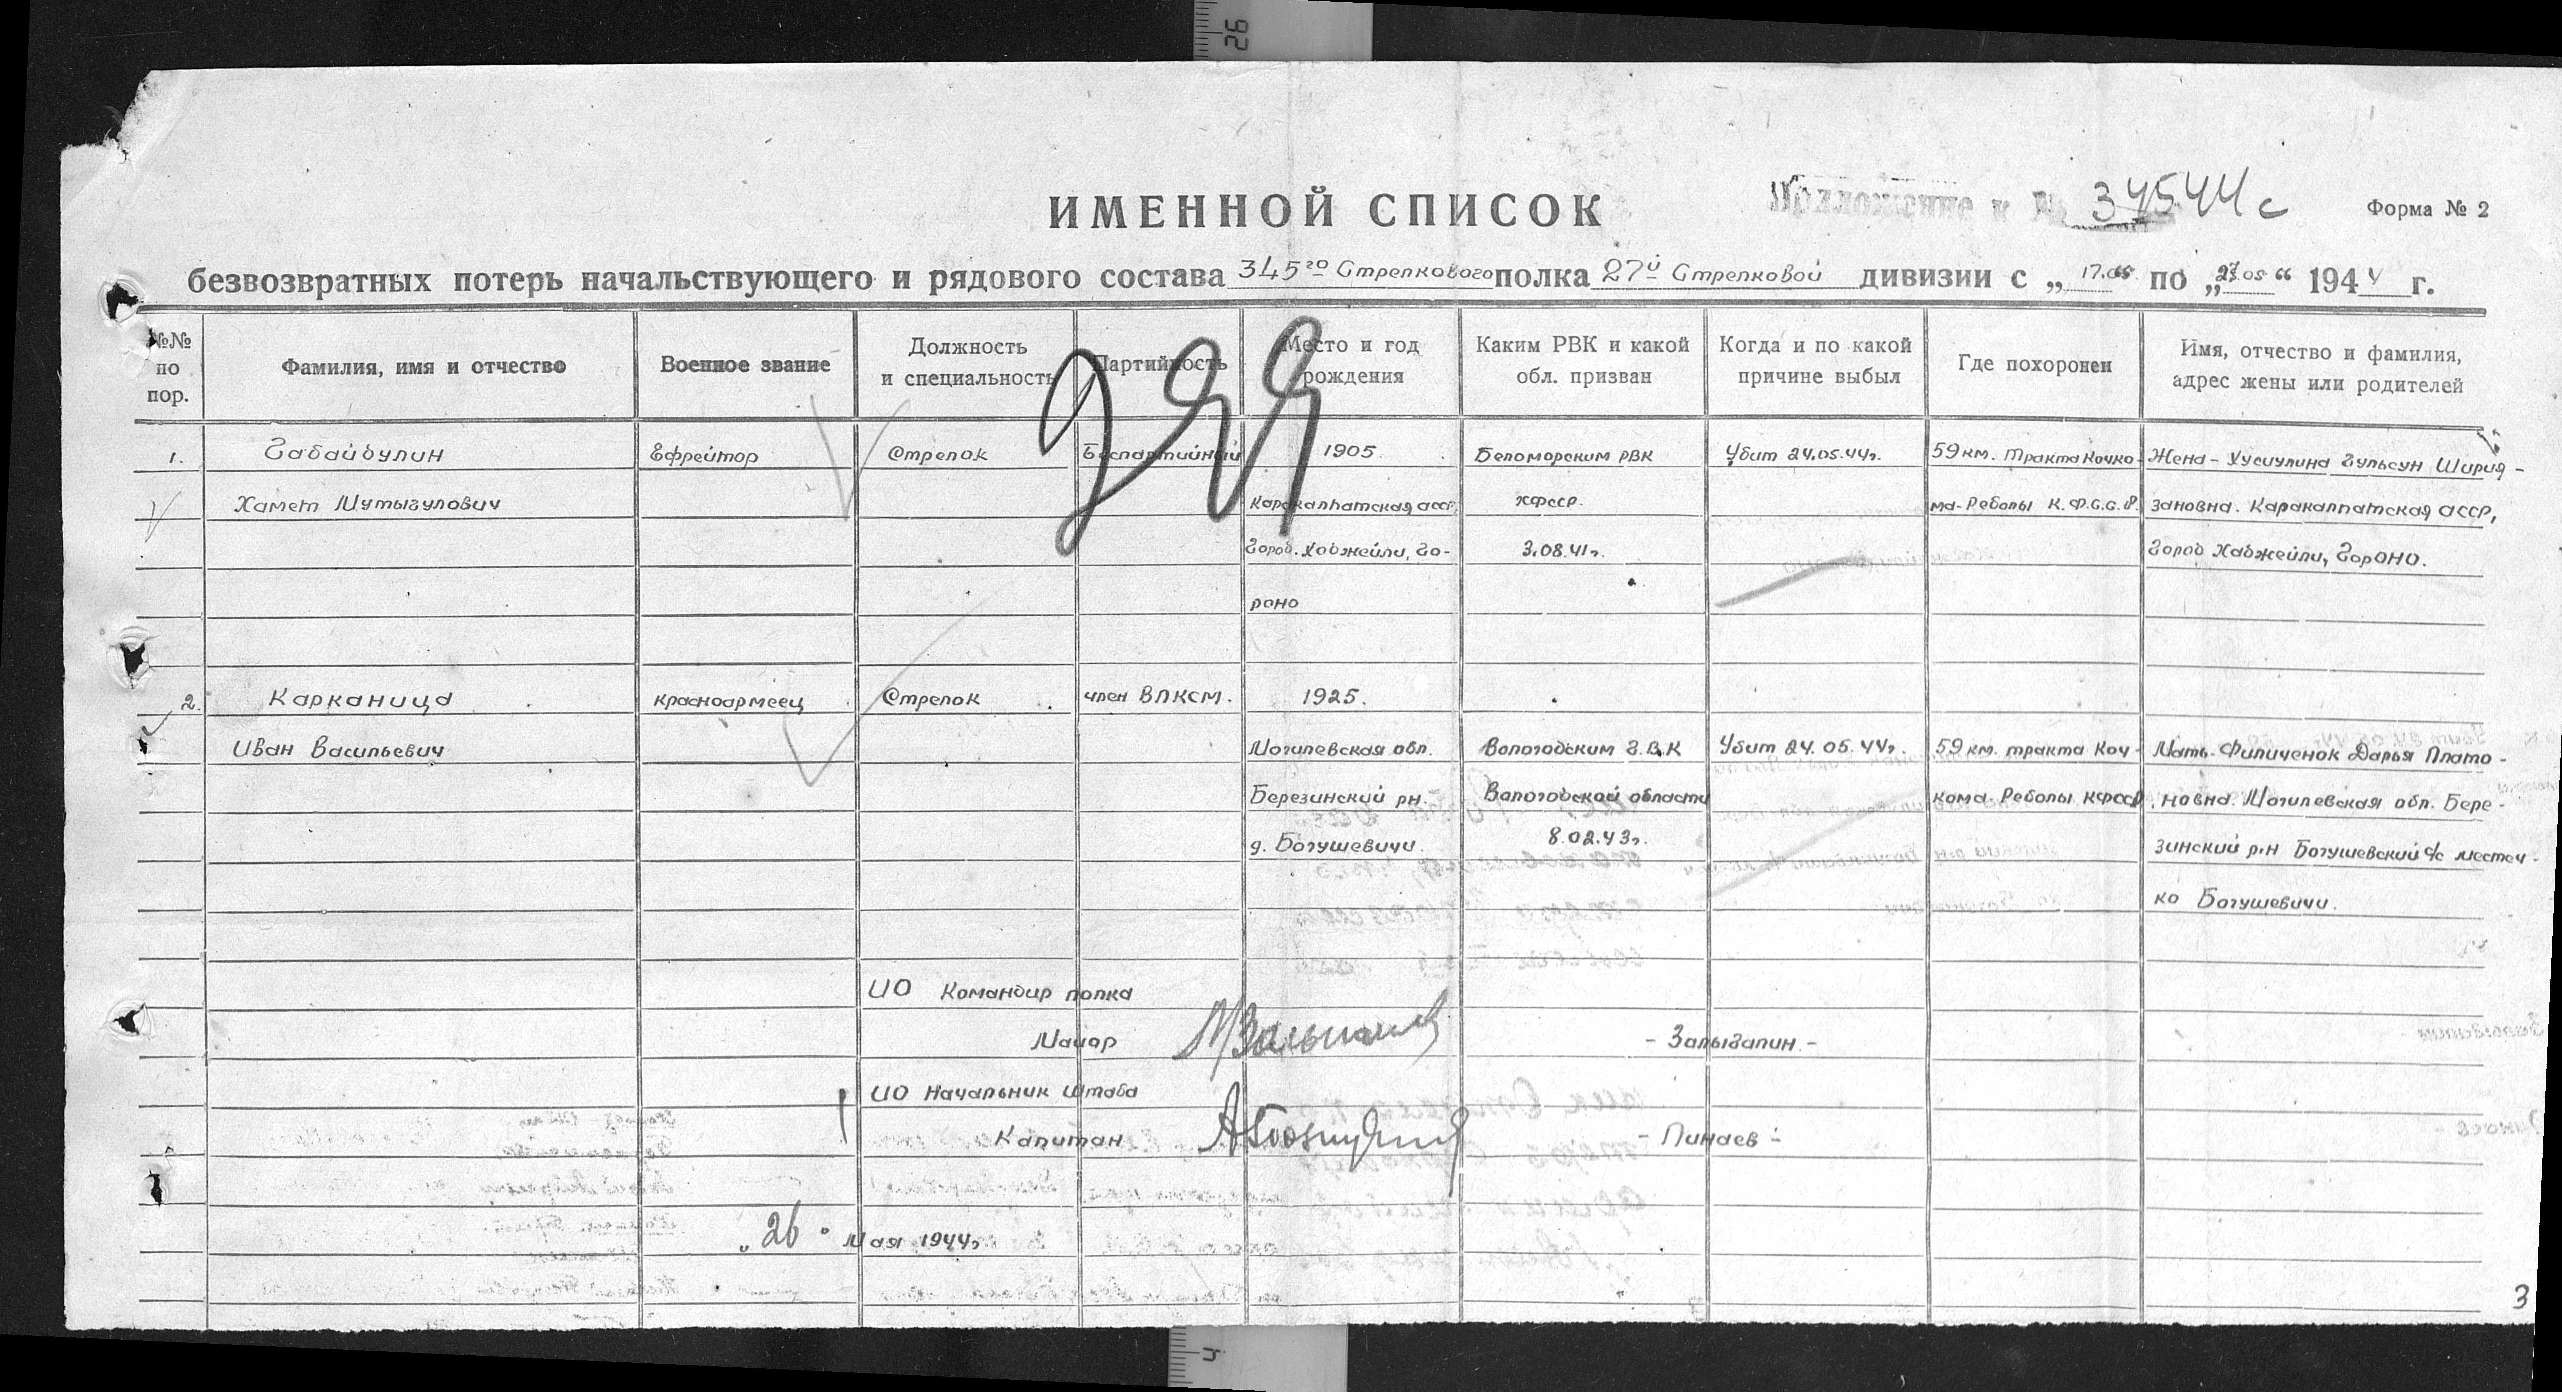 26
ИМЕННОЙ СПИСОК
Приложение к № 34544с
Форма № 2
безвозвратных потерь начальствующего и рядового состава 345го Стрелкового полка 27й Стрелковой дивизии с „17.05 по „27.05“ 1944 г.
№№ по пор.
Фамилия, имя и отчество
Военное звание
Должность и специальность
Партийность
Место и год рождения
Каким РВК и какой обл. призван
Когда и по какой причине выбыл
Где похоронен
Имя, отчество и фамилия, адрес жены или родителей
1. Габайбулин Ефрейтор Стрелок Беспартийный 1905. Беломорским РВК Убит 24.05.44г. 59 км. тракта Кочко- Жена - Хусиулина Гульсун Ширия-
Хамет Мутыгулович Каракалпатская АССР, КФССР. ма-Реболы К.Ф.С.С.Р. зановна. Каракалпатская АССР,
Город. Ходжейли, Го- 3.08.41г. Город Хаджейли, ГорОНО.
роно
2. Карканица красноармеец Стрелок член ВЛКСМ. 1925.
Иван Васильевич Могилевская обл. Вологодским Г.В.К Убит 24.05.44г. 59 км. тракта Коч- Мать-Филиченок Дарья Плато-
Березинский рн. Вологодской области кома-Реболы КФССР. новна. Могилевская обл. Бере-
д. Богушевичи. 8.02.43г. зинский р.н Богушевский с/с местеч-
ко Богушевичи.
ИО Командир полка
Майор - Залызалин -
ИО Начальник Штаба
Капитан - Линаев -
„26" Мая 1944г
3
4